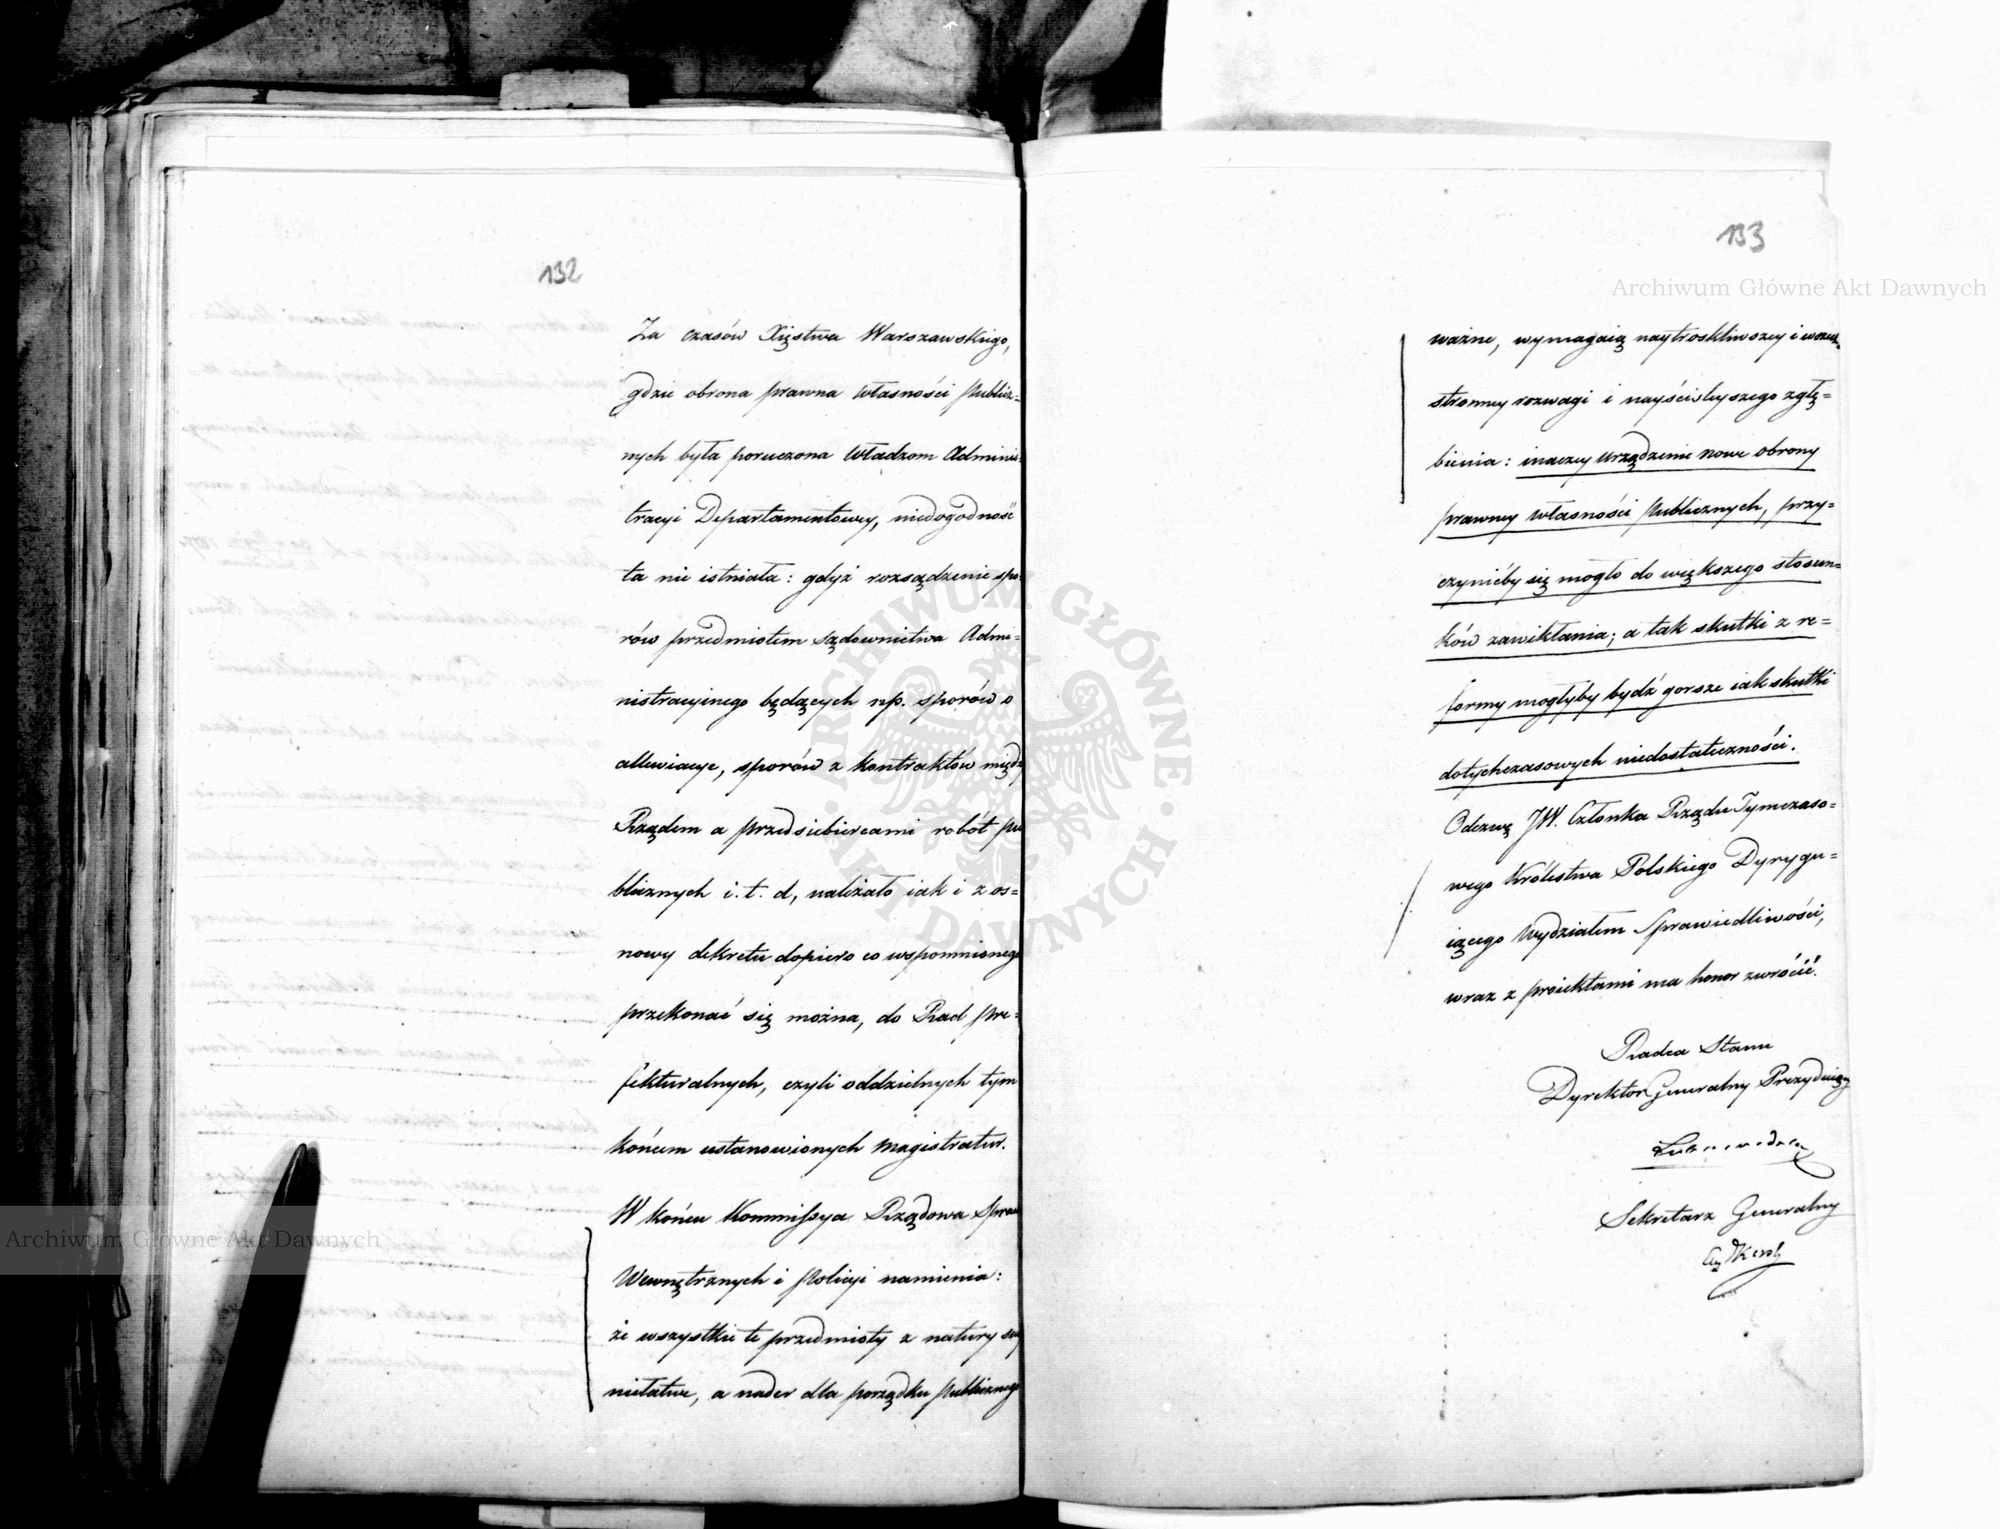 132
Za czasów Xięstwa Warszawskiego,
gdzie obrona prawna własności publicz=
nych była poruczona władzom Adminis=
tracyi Departamentowey, niedogodność
ta nie istniała: gdyż rozsądzenie spo=
rów przedmiotem sądownictwa Admi=
nistracyinego będących np. sporów o
alluwiacye, sporów z kontraktów międz
Rządem a przedsiebiercami robót pu
blicznych i. t. d, należało iak i z os=
nowy dekretu dopiero co wspomnionego
przekonać się można, do Rad pre=
fekturalnych, czyli oddzielnych tym
końcem ustanowionych magistratur.
W końcu Kommissya Rządowa Spraw
Wewnętrznych i Policyi namienia:
że wszystkie te przedmioty z natury swy
niełatwe, a nader dla porządku publicznego
133
ważne, wymagaią naytroskliwszey i wszech=
stronney rozwagi i nayściśleyszego zgłę=
bienia: inaczey urządzenie nowe obrony
prawney własności publicznych, przy=
czynićby się mogło do większego stosun=
ków zawikłania; a tak skutki z re=
formy mogłyby bydź gorsze iak skutki
dotychczasowych niedostateczności.
Odezwę JW. Członka Rządu Tymczaso=
wego Królestwa Polskiego Dyrygu=
iącego Wydziałem Sprawiedliwości,
wraz z proiektami ma honor zwrócić.
Radca Stanu
Dyrektor Generalny Prezyduiący
Sekretarz Generalny
Archiwum Główne Akt Dawnych
Archiwum Główne Akt Dawnych
ARCHIWUM GŁÓWNE · AKT DAWNYCH ·